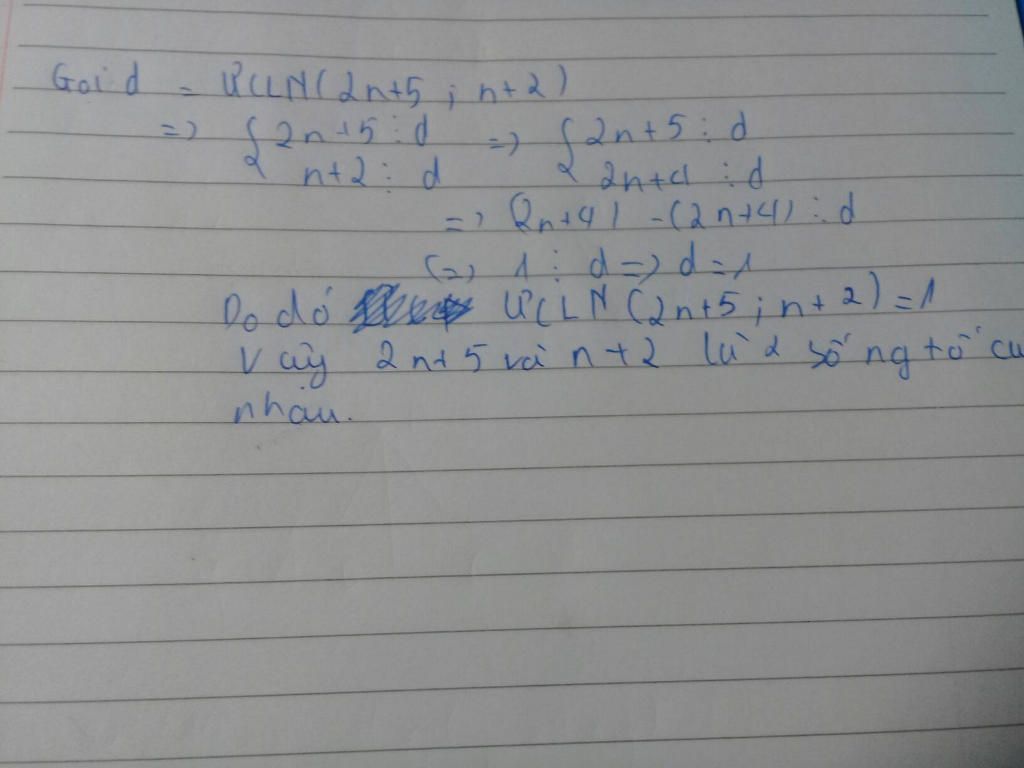 Gọi d = ƯCLN(2n+5 ; n+2)
=> { 2n+5 ⋮ d => { 2n+5 ⋮ d
n+2 ⋮ d 2n+4 ⋮ d
=> (2n+4) - (2n+4) ⋮ d
(=) 1 ⋮ d => d=1
Do đó ƯCLN (2n+5 ; n+2) = 1
Vậy 2n+5 và n+2 là 2 số ng tố cu
nhau.